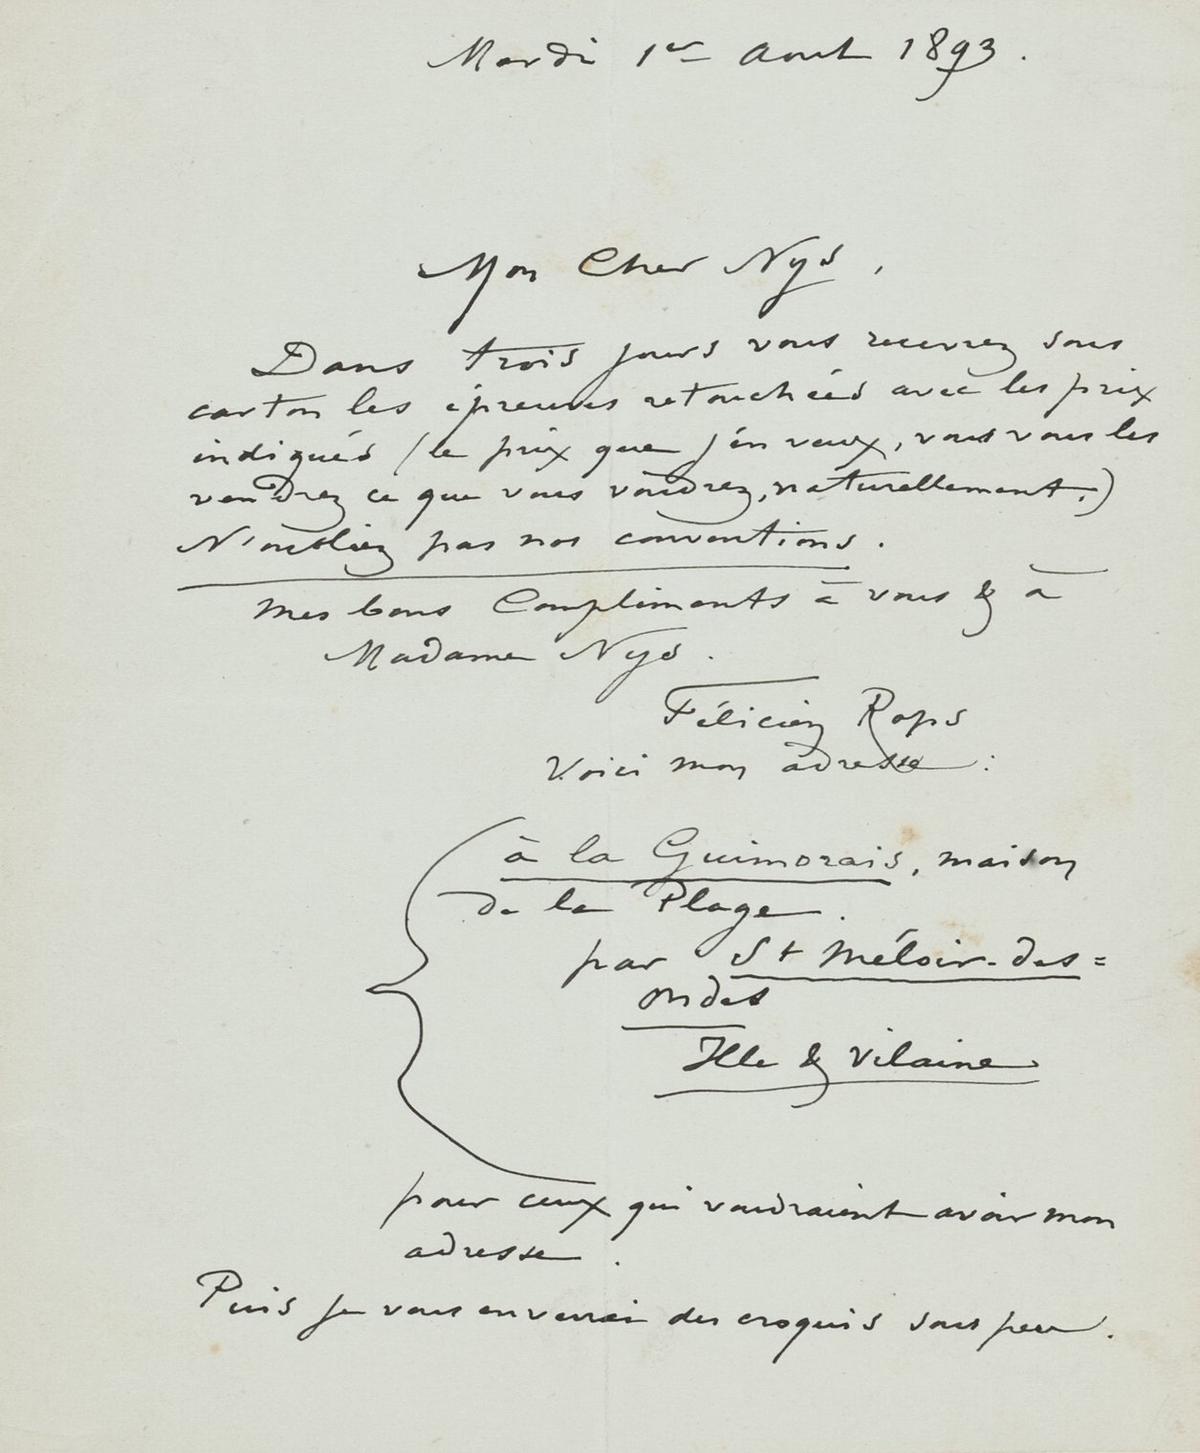 Mardi 1er Aout 1893.
Mon Cher Nys,
Dans trois jours vous recevrez sous
carton les épreuves retouchées avec les prix
indiqués (le prix que j'en veux, vous vous les
vendrez ce que vous voudrez, naturellement.)
N'oubliez pas nos conventions.
Mes bons Compliments à vous & à
Madame Nys.
Félicien Rops
Voici mon adresse :
à la Guimorais, maison
de la Plage.
par St Méloir-des=
ondes
Ille & Vilaine
pour ceux qui voudraient avoir mon
adresse.
Puis je vous enverrai des croquis sous peu.